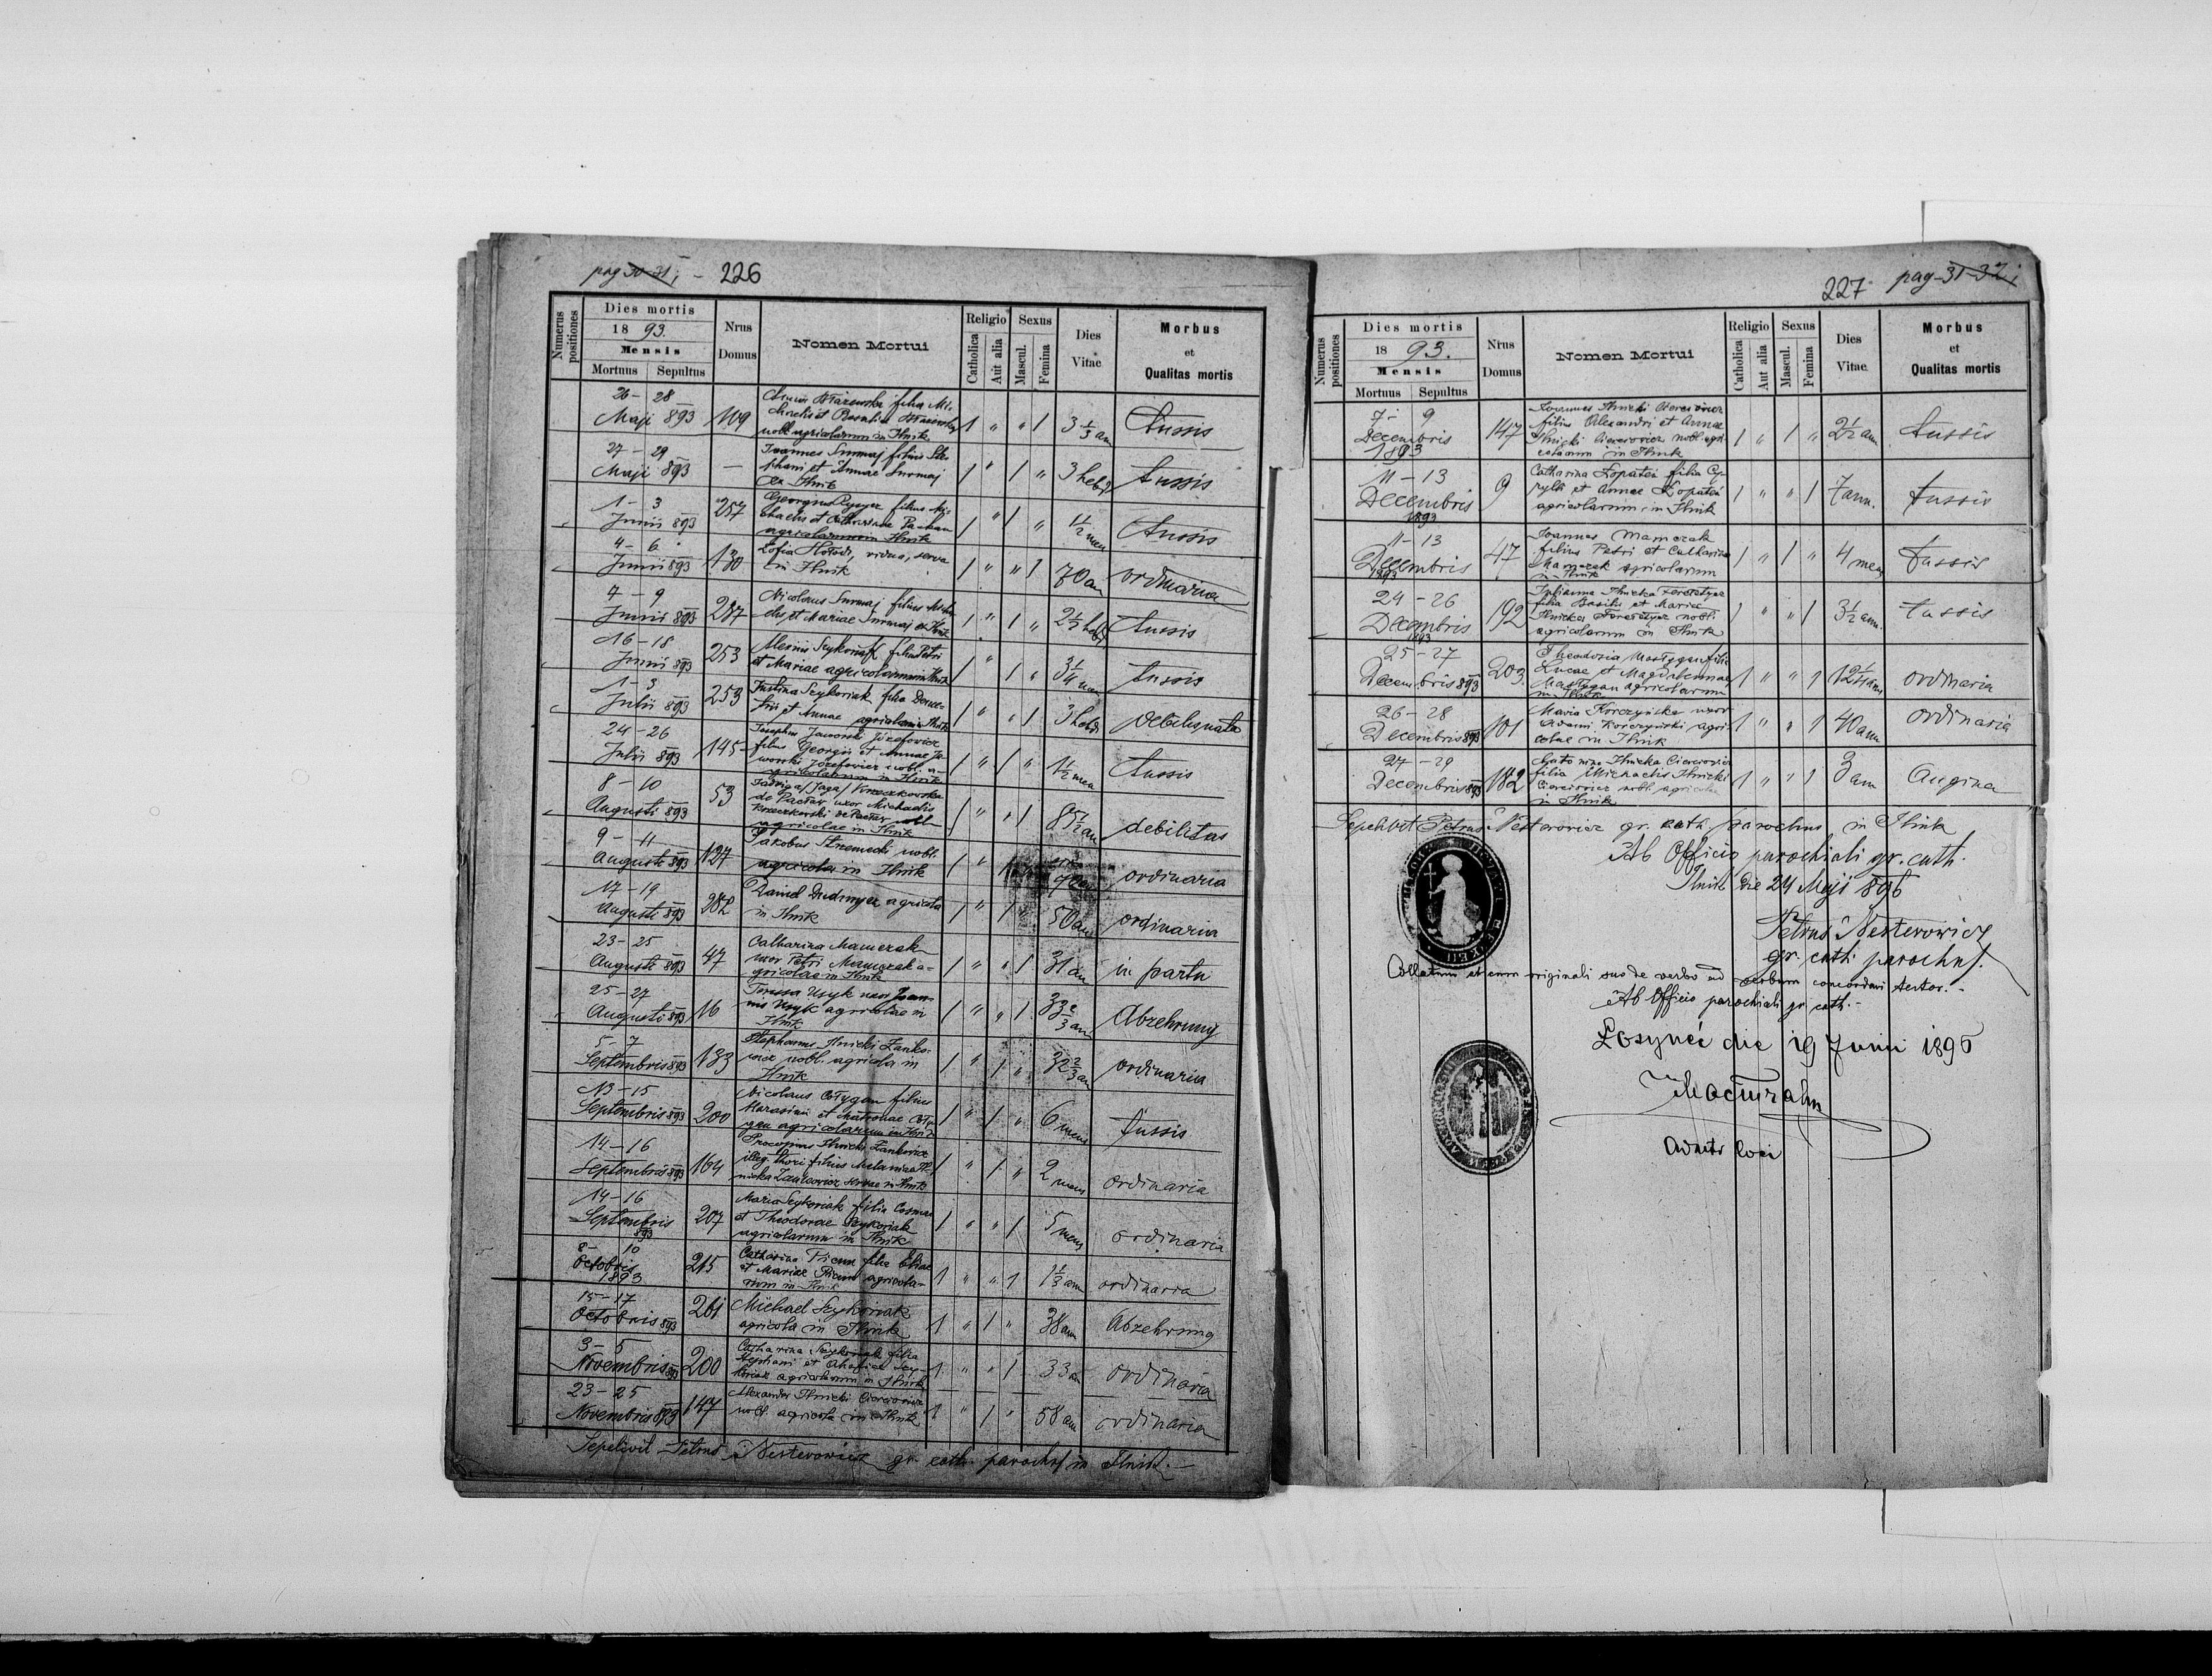 pag 30-31; - 226
Numerus positiones
Dies mortis
18 93.
Mensis
Mortuus Sepultus
Nrus Domus
Nomen Mortui
Religio
Catholica
Aut alia
Sexus
Mascul.
Femina
Dies Vitae
Morbus
et
Qualitas mortis
26 - 28
Maji 893 109 filia Mi-
nobl. agricolarum in Ilnik 1 " " 1 3 1/3 an Tussis
27 - 29
Maji 893 - Joannes Surmaj filius Ste-
phani et Annae Surmaj
ex Ilnik 1 " 1 " 3 hebd Tussis
1 - 3
Junii 893 257 filius Mi-
chaelis et Catharinae
agricolarum in Ilnik 1 " 1 " 1 1/2 men Tussis
4 - 6
Junii 893 130 Zofia vidua, serva
in Ilnik 1 " " 1 70 an ordinaria
7 - 9
Junii 893 287 Nicolaus Surmaj filius Micha-
elis et Mariae Surmaj ex Ilnik 1 " 1 " 2 1/2 hebd Tussis
16 - 18
Junii 893 253 filius Petri
et Mariae agricolarum in Ilnik 1 " 1 " 3 1/4 men Tussis
1 - 3
Julii 893 253 Justina Szykoriak filia Deme-
trii et Annae agricolarum Ilnik 1 " " 1 3 hebd Debilis nata
24 - 26
Julii 893 145 Josephus Jaworski Józefowicz
filius Georgii et Annae Ja-
worski Józefowicz nobl. a-
gricolarum in Ilnik 1 " 1 " 1 1/2 men Tussis
8 - 10
Augusti 893 53 Jadwiga /Jaga/ Krzeczkowska
de uxor Michaelis
Krzeczkowski nobl.
agricolae in Ilnik 1 " " 1 85 1/2 an debilitas
9 - 11
Augusti 893 127 Jakobus nobl.
agricola in Ilnik 1 " 1 ordinaria
17 - 19
Augusti 893 Daniel agricola
in Ilnik 1 " 1 " 50 an ordinaria
23 - 25
Augusti 893 47 Catharina Mamczak
uxor Petri Mamczak a-
gricolae in Ilnik 1 " " 1 31 an in partu
25 - 27
Augusti 893 16 Teressa Usyk uxor Joan-
nis Usyk agricolae in
Ilnik 1 " " 1 33 2/3 an Abzehrung
5 - 7
Septembris 893 133 Stephanus Ilnicki Zanko-
wicz nobl. agricola in
Ilnik 1 " 1 " 32 2/3 an ordinaria
13 - 15
Septembris 893 200 Nicolaus filius
et Matronae
agricolarum in Ilnik 1 " 1 " 6 mens Tussis
14 - 16
Septembris 893 164 Procopius Ilnicki Zankowicz
illeg. thori filius Melaniae Il-
nicka Zankowicz servae in Ilnik 1 " 1 " 2 mens ordinaria
14 - 16
Septembris 893 207 Maria Szykoriak filia Cosmae
et Theodorae Szykoriak
agricolarum in Ilnik 1 " " 1 5 mens ordinaria
8 - 10
Octobris 1893 215 Catharina Picun filia Eliae
et Mariae Picun agricola-
rum in Ilnik 1 " " 1 1 1/3 ann ordinaria
15 - 17
Octobris 893 261 Michael Szykoriak
agricola in Ilnik 1 " 1 " 38 ann Abzehrung
3 - 5
Novembris 893 200 Catharina Szykoriak filia
Stephani et Szy-
koriak agricolarum in Ilnik 1 " " 1 33 an ordinaria
23 - 25
Novembris 893 147 Alexander Ilnicki Cierciowicz
nobl. agricola in Ilnik 1 " 1 " 58 an ordinaria
Sepelivit Petrus Nesterowicz gr. cath. parochus in Ilnik. -
227 pag 31-32;
Numerus positiones
Dies mortis
18 93.
Mensis
Mortuus Sepultus
Nrus Domus
Nomen Mortui
Religio
Catholica
Aut alia
Sexus
Mascul.
Femina
Dies Vitae
Morbus
et
Qualitas mortis
7 - 9
Decembris 1893 147 Joannes Ilnicki Cierciowicz
filius Alexandri et Annae
Ilnicki Cierciowicz nobl. agri-
colarum in Ilnik 1 " 1 " 2 1/2 ann tussis
11 - 13
Decembris 1893 9 Catharina Łopatei filia Cy-
rylli et Annae Łopatei
agricolarum in Ilnik 1 " " 1 7 ann. tussis
11 - 13
Decembris 1893 47 Joannes Mamczak
filius Petri et Catharina
Mamczak agricolarum
in Ilnik 1 " 1 " 4 mens tussis
24 - 26
Decembris 1893 192 Julianna Ilnicka
filia Basilii et Mariae
Ilnicka nobl.
agricolarum in Ilnik 1 " " 1 3 1/2 ann. tussis
25 - 27
Decembris 893 203. Theodozia filia
Lucae et Magdalennae
agricolarum
in Ilnik 1 " " 1 ordinaria
26 - 28
Decembris 893 101 Maria Korczyńska uxor
Adami Korczyński agri-
colae in Ilnik 1 " " 1 40 ann ordinaria
27 - 29
Decembris 893 182 Ilnicka Cierciowicz
filia Michaelis Ilnicki
Cierciowicz nobl. agricolae
in Ilnik 1 " " 1 3 am Angina
Sepelivit Petrus Nesterowicz gr. cath. parochus in Ilnik
Ab Officio parochiali gr. cath.
Ilnik die 24 Maji 896
Petrus Nesterowicz
gr. cath. parochus.
Collatum et cum originali suo de verbo ad verbum concordari testor. -
Ab Officio parochiali gr. cath. -
Łosyneć die 19 Junii 1896
Admtr loci